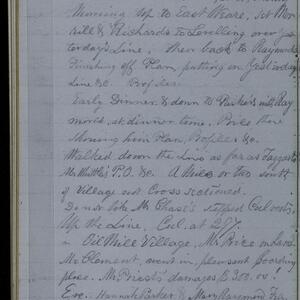 Morning Up to East Weare, Set Mor-
rill & Richards to Levelling over yes-
terday's Line, then back to Raymonds
finishing off Plan, putting on Yesterdays
Line &c. Profiles.
Early Dinner & down to Parker's with Ray-
mond at dinner time. Price there
showing him Plan, Profiles &c.
Walked down the Line as far as Taggarts
Mr Whittle's P.O. &c. A Mile or two south
of Village not Cross sectioned.
Do not like Mr Chase's stepped Culverts
Up the Line, Cul. at 287.
in Oil Mill Village, Mr Price on Land
Mr Clement, went in, pleasant boarding
place. Mr Priest's damages $300.00!
Eve. Hannah Parker & Mary Raymond